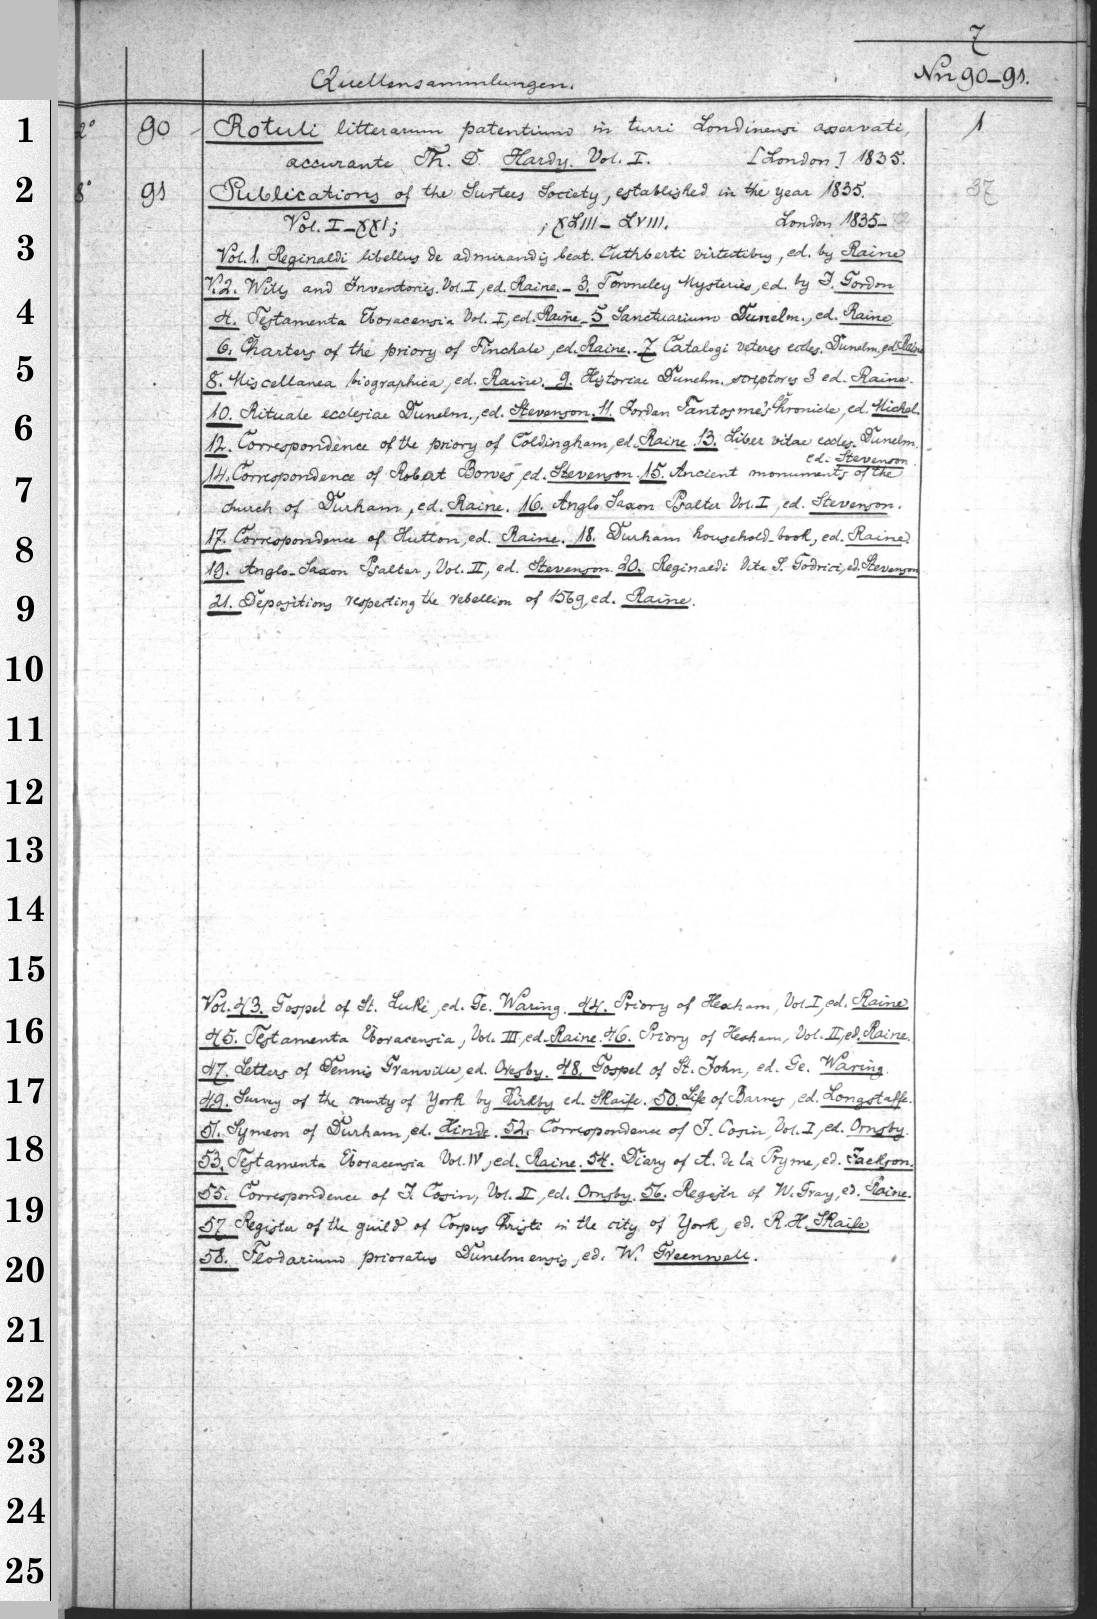 7
Quellensammlungen.
Nn 90-91.
1 2° 90 Rotuli litterarum patentium in turri Londinensi asservati, 1
accurante Th. D. Hardy. Vol. I. [London] 1835.
2 8° 91 Publications of the Surtees Society, established in the year 1835. 37
Vol. I-XXI; ; XLIII-LVIII. London 1835-
3 Vol. 1. Reginaldi libellus de admirandis beat. Cuthberti virtutibus, ed. by Raine
V. 2. Wills and Inventories. Vol. I, ed. Raine. - 3. Towneley Mysteries, ed. by J. Gordon
4 4. Testamenta Eboracensia Vol. I, ed. Raine 5 Sanctuarium Dunelm., ed. Raine
6. Charters of the priory of Finchale, ed. Raine. - 7 Catalogi veteres eccles. Dunelm. ed. Raine
5 8. Miscellanea biographica, ed. Raine. 9. Historiae Dunelm. scriptores 3 ed. Raine.
10. Rituale ecclesiae Dunelm., ed. Stevenson. 11. Jordan Fantosme's Chronicle, ed. Michel.
6 12. Correspondence of the priory of Coldingham, ed. Raine 13. Liber vitae eccles. Dunelm.
ed. Stevenson.
7 14. Correspondence of Robert Bowes, ed. Stevenson. 15. Ancient monuments of the
church of Durham, ed. Raine. 16. Anglo Saxon Psalter Vol. I, ed. Stevenson.
8 17. Correspondence of Hutton, ed. Raine. 18. Durham household-book, ed. Raine.
19. Anglo-Saxon Psalter, Vol. II, ed. Stevenson. 20. Reginaldi Vita S. Godrici, ed. Stevenson
9 21. Depositions respecting the rebellion of 1569, ed. Raine.
10
11
12
13
14
15
Vol. 43. Gospel of St. Luke, ed. Ge. Waring. 44. Priory of Hexham, Vol. I, ed. Raine
16 45. Testamenta Eboracensia, Vol. III, ed. Raine. 46. Priory of Hexham, Vol. II, ed. Raine.
47. Letters of Dennis Granville, ed. Ornsby. 48. Gospel of St. John, ed. Ge. Waring.
17 49. Survey of the county of York by Kirkby ed. Skaife. 50. Life of Barnes, ed. Longstaffe.
51. Symeon of Durham, ed. Hinde. 52. Correspondence of J. Cosin, Vol. I, ed. Ornsby.
18 53. Testamenta Eboracensia Vol. IV, ed. Raine. 54. Diary of A. de la Pryme, ed. Jackson.
55. Correspondence of J. Cosin, Vol. II, ed. Ornsby. 56. Register of W. Gray, ed. Raine.
19 57 Register of the guild of Corpus Christi in the city of York, ed. R. H. Skaife
20 58. Feodarium prioratus Dunelmensis, ed. W. Greenwell.
21
22
23
24
25